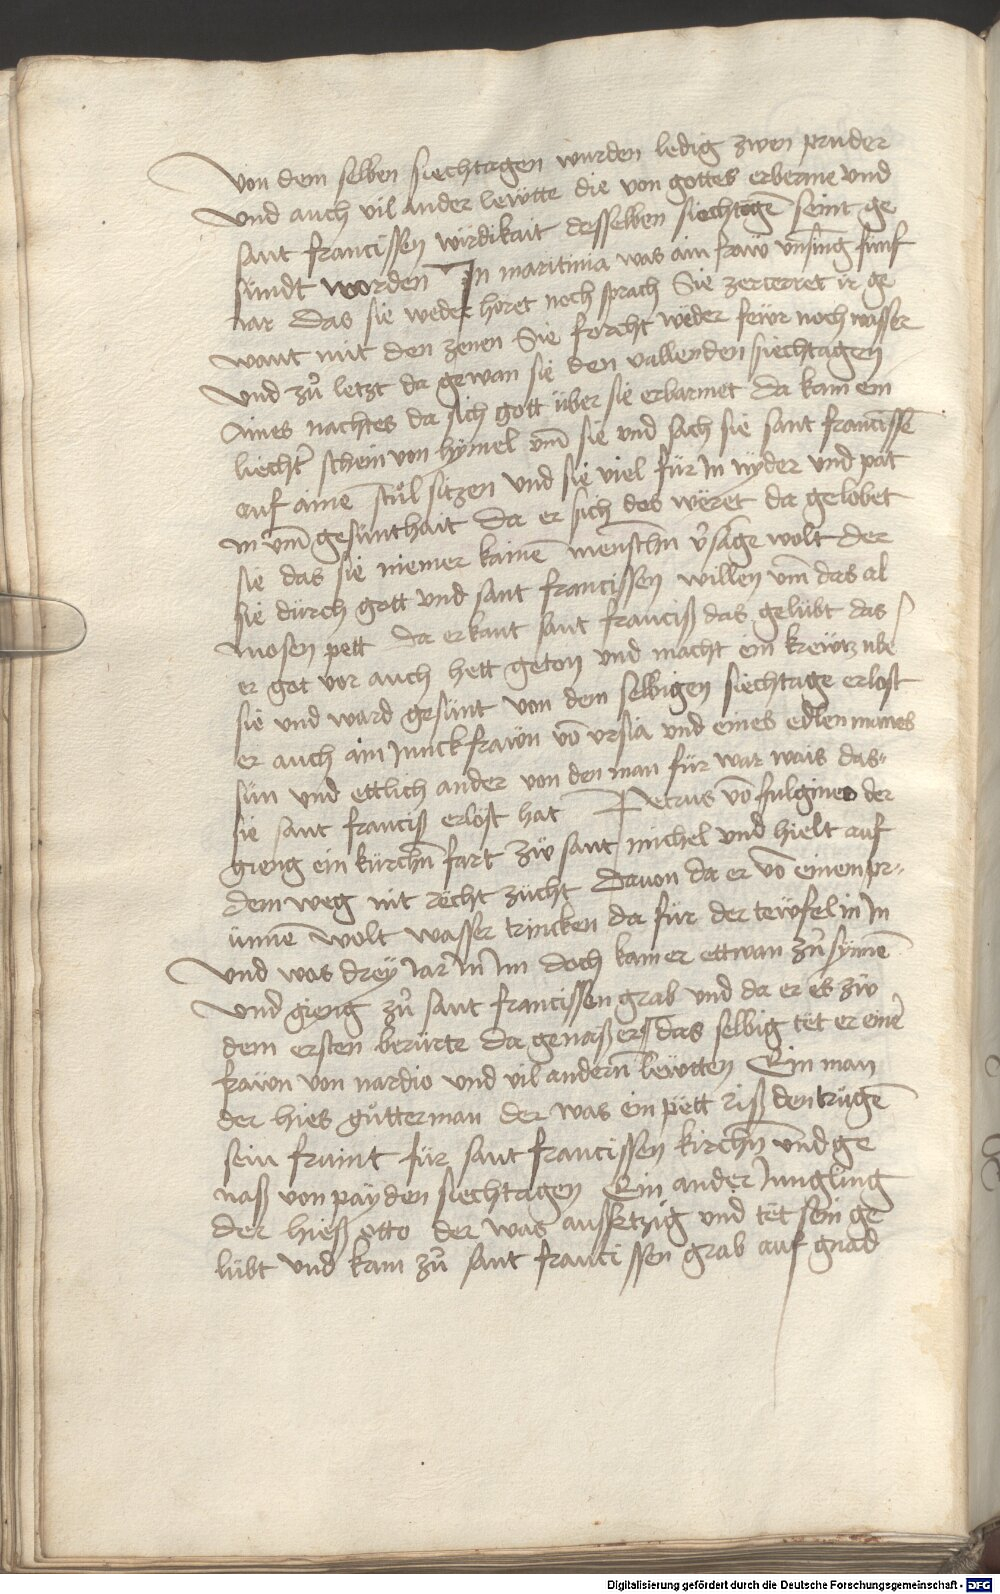 von dem selben siechtagen wurden ledig zwen pruder
vnd auch vil ander lewtte die von gottes erberme vnd
sant francissen wirdikait desselben siechtogē seint ge
sundt worden In maritima was ain fraw vnsinig fünf
iar das sie weder höret noch sprach Sie zercerret ir ge
want mit den zenen Sie forcht weder fewr noch wasser
vnd zů letzt da gewan sie den vallenden siechtagen
Aines nachtes da sich gott über sie erbarmet da kam ein
liecht schein von hymel vm̄ sie vnd sach sie sant francissē
auf aine stůl sitzen vnd sie viel für in nyder vnd pat
in vm̄ gesunthait Da er sich des weret da gelobet
sie das sie niemer kainē menschn v̓sage wolt der
sie durch gott vnd sant francissen willen vm̄ das al
mosen pett da erkant sant franciß das gelübt das
er got vor auch hett geton vnd macht ein kreutz vbe
sie vnd ward gesunt von dem selbigen siechtage erlost
er auch ain Junckfrawn vō vrsia vnd eines edlen mannes
sun vnd ettlich ander von den man für war wais das
sie sant franciß erlost hat Petrus vō fulgineo der
gieng ein kürchn̄ fart zw sant michel vnd hielt auf
dem weg nit recht zücht Dauon da er vō einem pr
unnē wolt wasser trincken da für der tewfel in In
vnd was drey Jar in im doch kam er ettwan zu synnē
vnd gieng zů sant francissen grab vnd da er es zw
dem ersten berürte da genaß er das selbig tet er einē
frawn von nardio vnd vil andern̄ lewtten Ein man
der hies gutterman der was ein pett riß den trugē
sein fruint für sant francissen kirchn̄ vnd ge
naß von payden siechtagen Ein ander Jungling
der hieß otto der was aussetzig vnd tet sein ge
lübt vnd kam zů sant francissen grab auf gnad
Digitalisierung gefördert durch die Deutsche Forschungsgemeinschaft - DFG